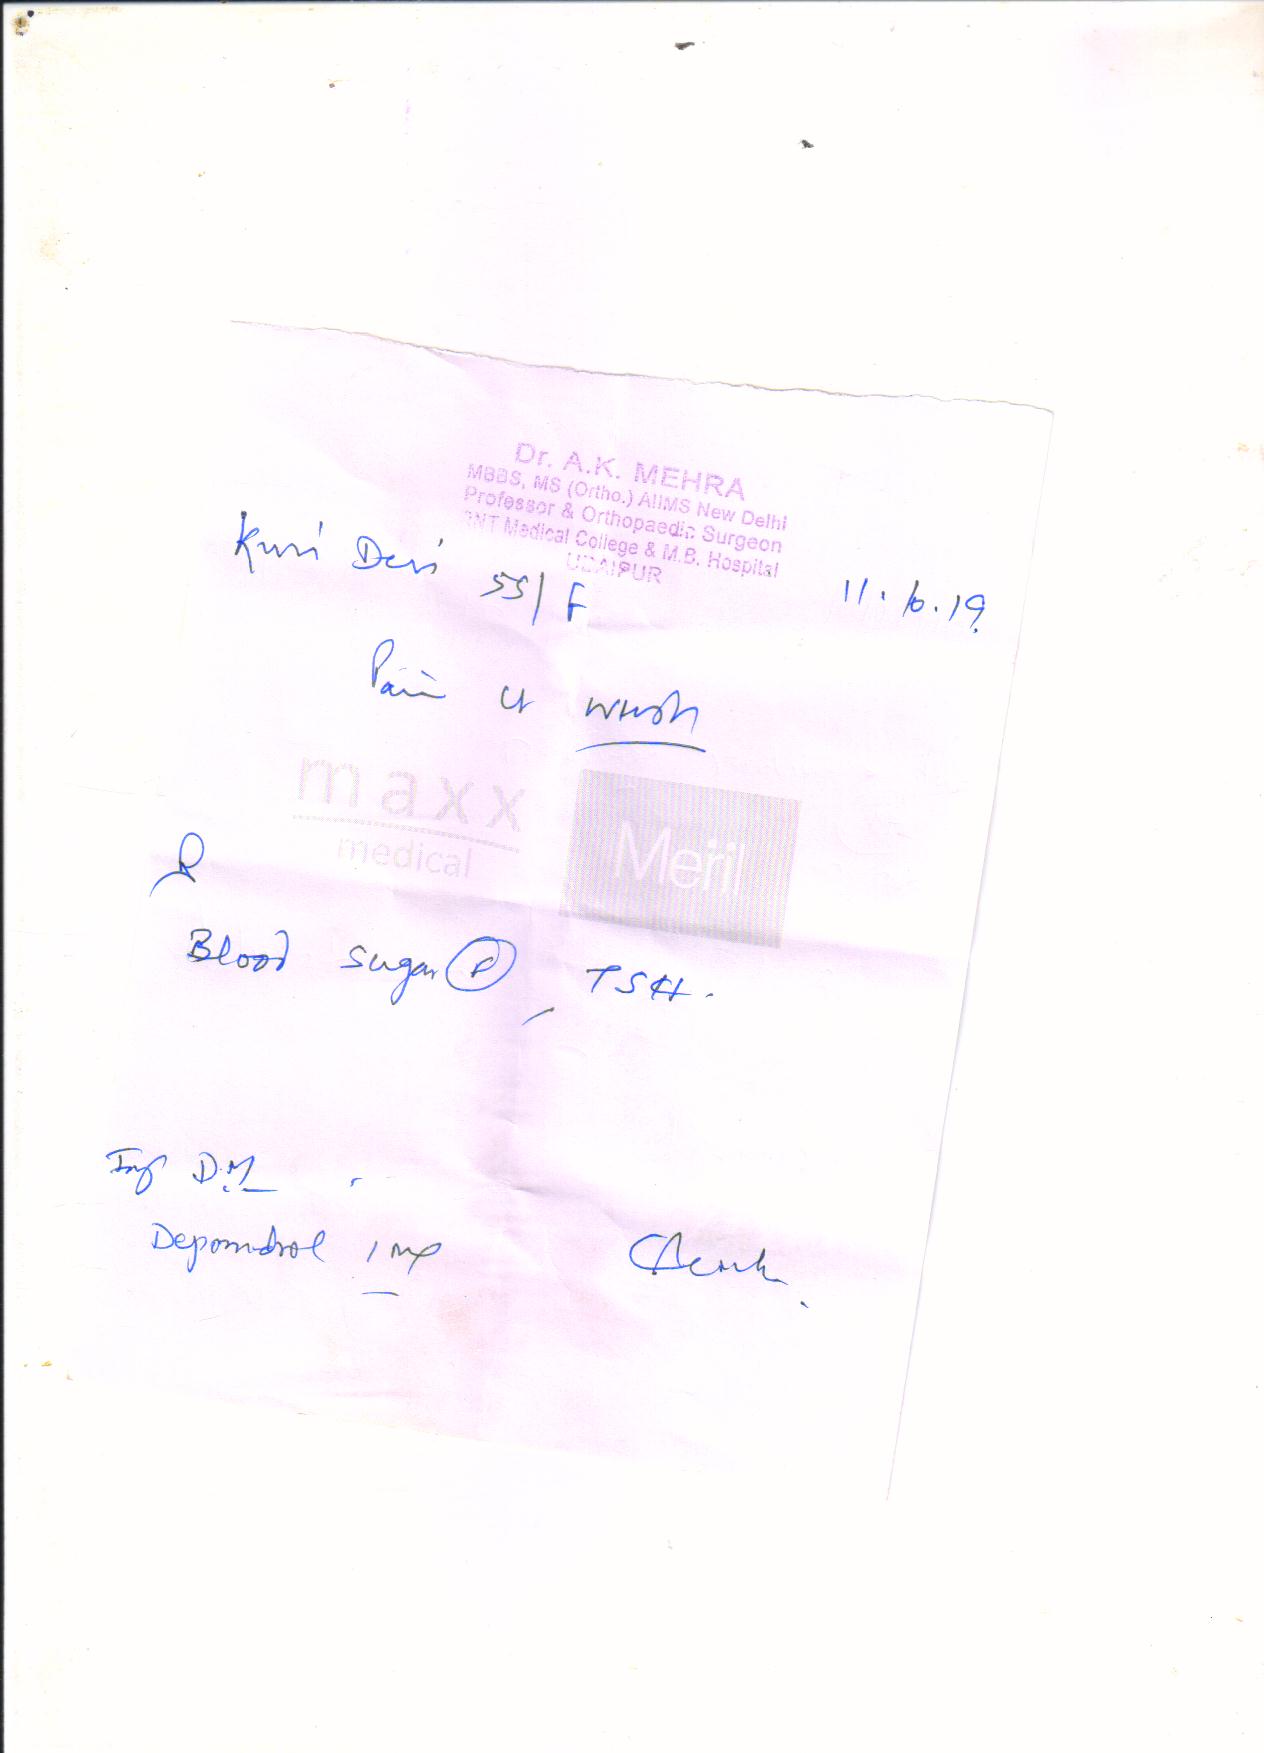 Dr. A.K. MEHRA
MBBS, MS (Ortho.) AIIMS New Delhi
Professor & Orthopaedic Surgeon
RNT Medical College & M.B. Hospital
UDAIPUR
Devi 55/F
11.6.19
Pain
maxx
medical
Meril
Blood Sugar (F), TSH.
Inj D.M
Depomedrol